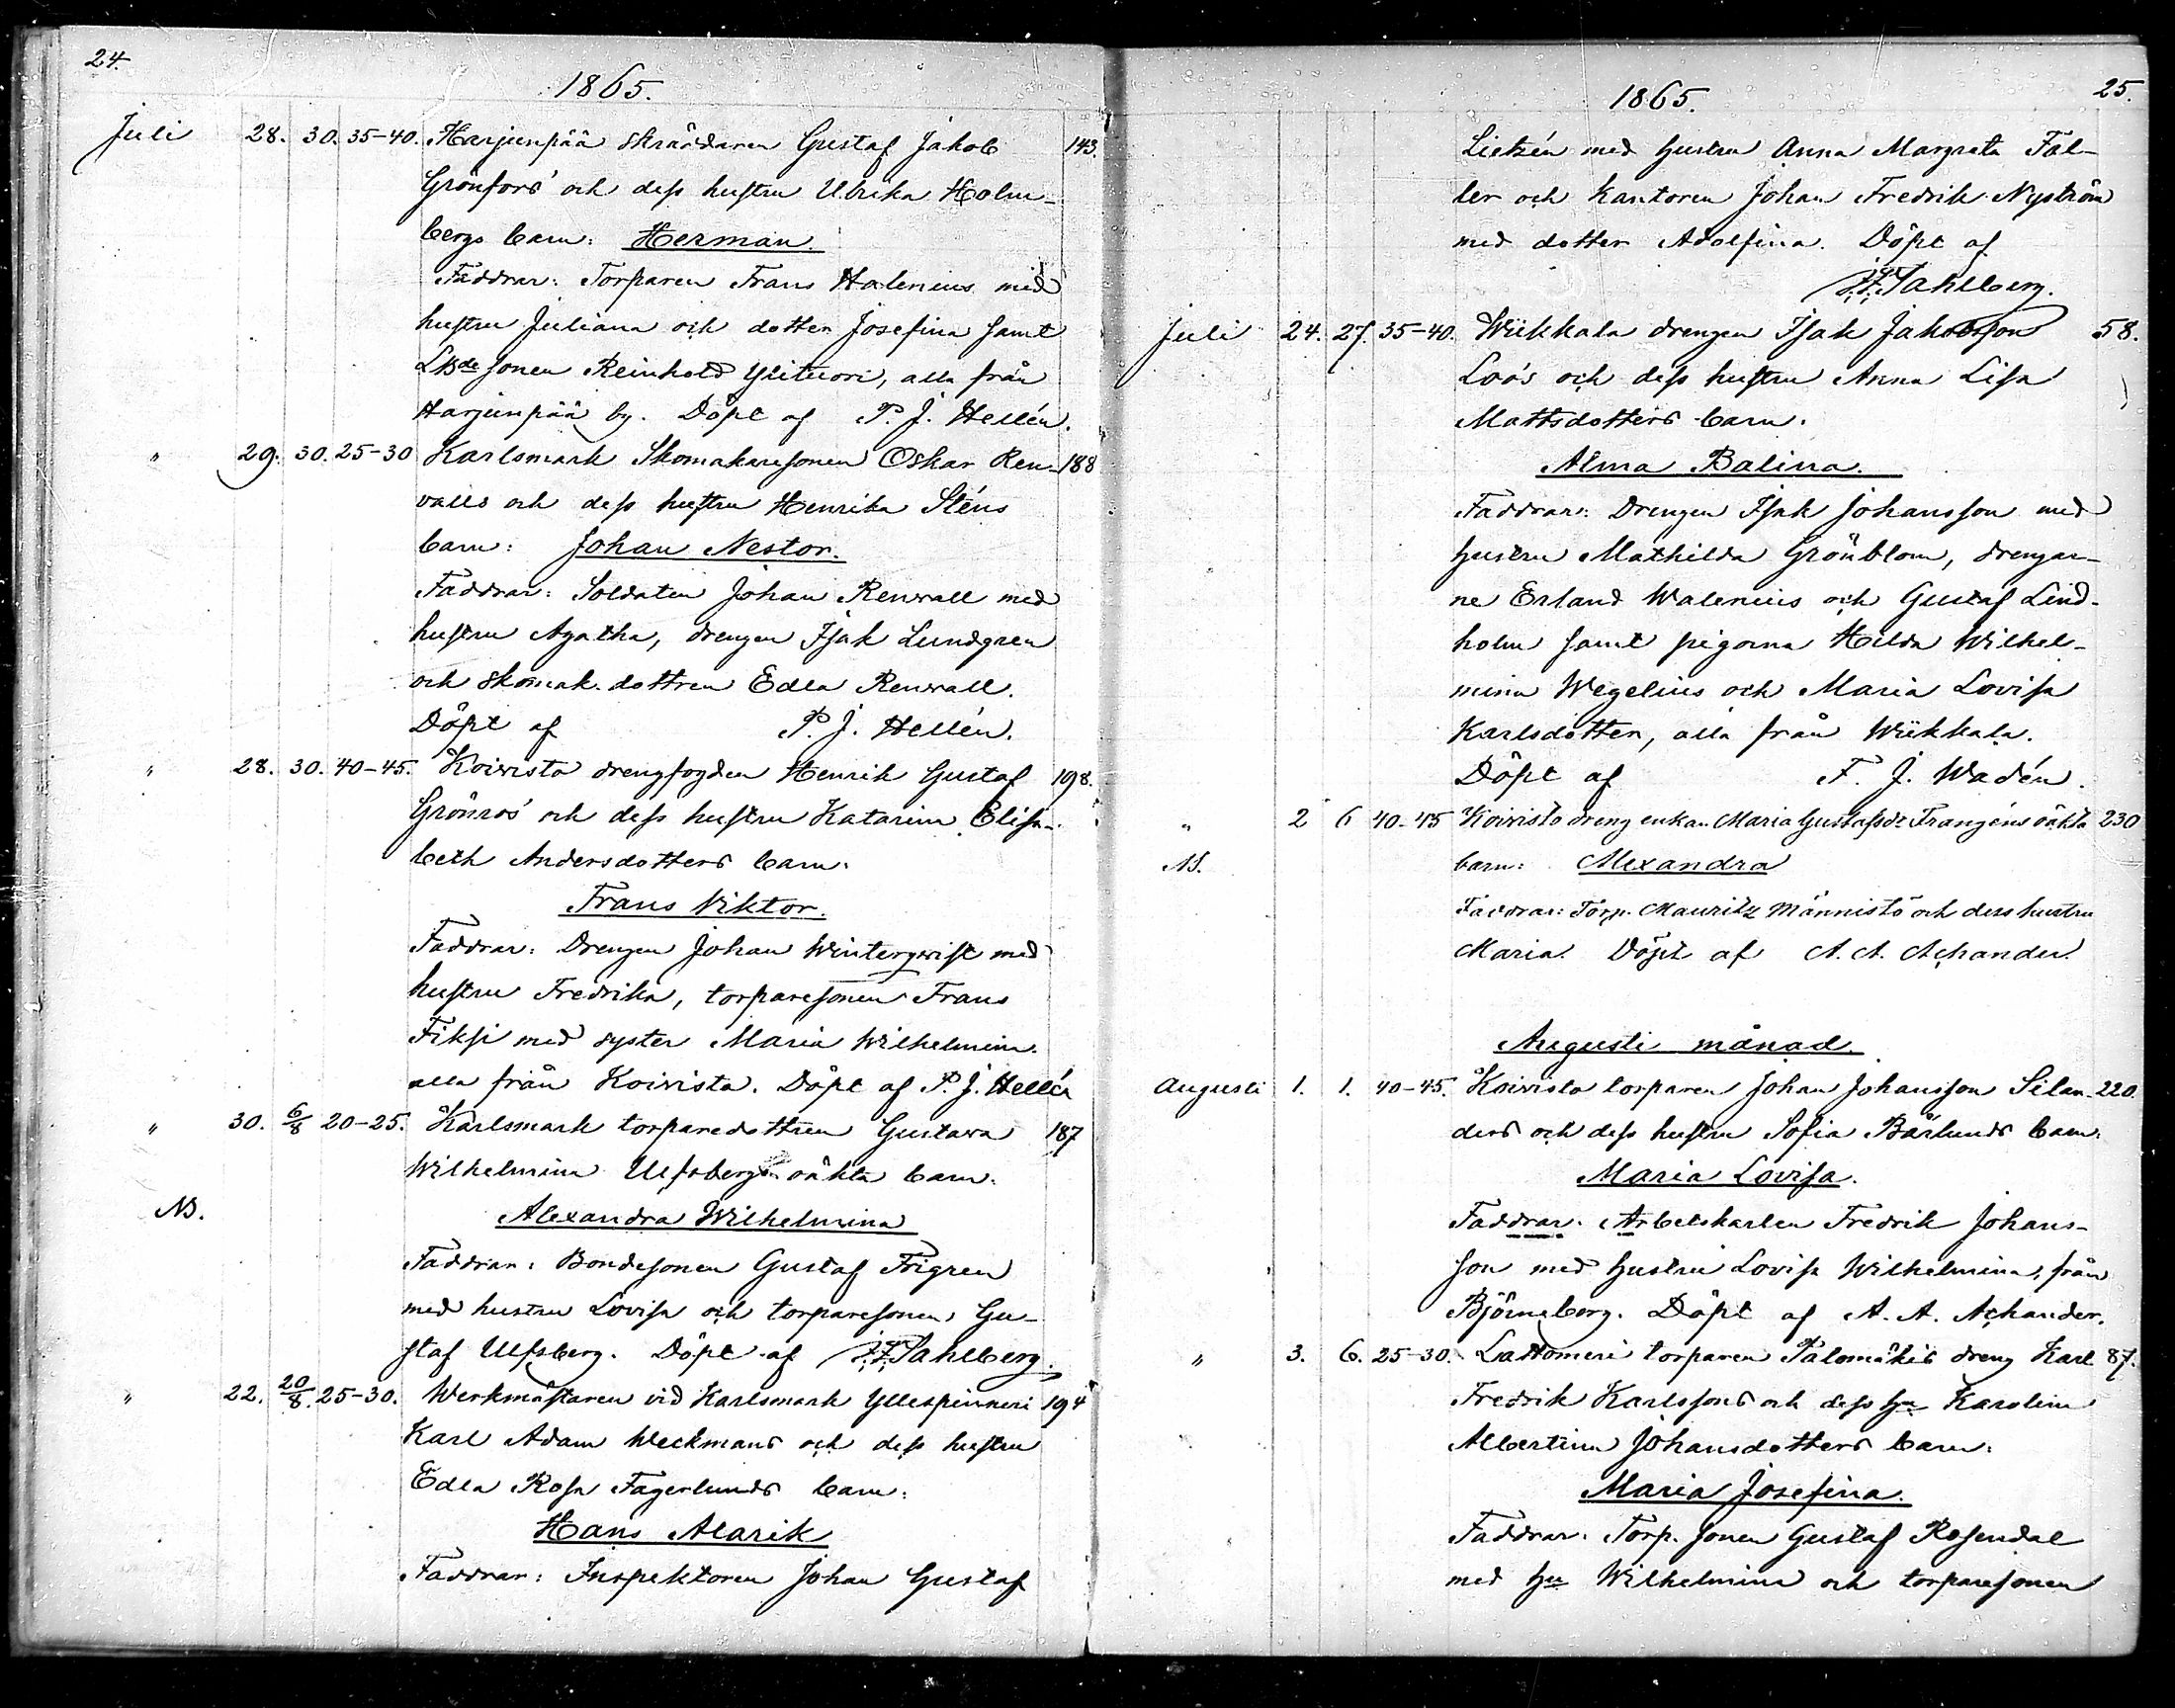 24.
1865.
Juli 28. 30. 35-40. Harjunpää skräddaren Gustaf Jakob 143.
Grönfors' och dess hustru Ulrika Holm-
bergs barn: Herman.
Faddrar: Torparen Frans Halenius med
hustru Juliana och dotter Josefina samt
Lbde sonen Reinhold Ylituori, alla från
Harjunpää by. Döpt af P. J. Hellén.
" 29. 30. 25-30 Karlsmark Skomakaresonen Oskar Ren- 188
valls och dess hustru Henrika Sténs
barn: Johan Nestor.
Faddrar: Soldaten Johan Renvall med
hustru Agatha, drengen Isak Lundgren
och skomak. dottren Edla Renvall.
Döpt af P. J. Hellén.
" 28. 30. 40-45. Koivisto drengfogden Henrik Gustaf 198.
Grönros' och dess hustru Katarina Elisa-
beth Andersdotters barn:
Frans Viktor.
Faddrar: Drengen Johan Winterqvist med
hustru Fredrika, torparesonen Frans
Fiksi med syster Maria Wilhelmina.
alla från Koivisto. Döpt af P. J. Hellén
" 30. 6/8 20-25. Karlsmark torparedottren Gustava 187
Wilhelmina Ulfsbergs oäkta barn:
NB. Alexandra Wilhelmina
Faddrar: Bondesonen Gustaf Frigren
med hustru Lovisa och torparesonen Gu-
staf Ulfsberg. Döpt af J. F. Sahlberg.
" 22. 20/8. 25-30. Werkmästaren vid Karlsmark Yllespinneri 194
Karl Adam Weckmans och dess hustru
Edla Rosa Fagerlunds barn:
Hans Alarik
Faddrar: Inspektoren Johan Gustaf
25.
1865.
Lietzén med hustru Anna Margreta Fäl-
ler och Kantoren Johan Fredrik Nyström
med dotter Adolfina. Döpt af
J. F. Sahlberg.
Juli 24. 27. 35-40. Wiikkala drengen Isak Jakobsson 58.
Loo's och dess hustru Anna Lisa
Mattsdotters barn:
Alma Balina.
Faddrar: Drengen Isak Johansson med
hustru Mathilda Grönblom, drengar-
ne Erland Walenius och Gustaf Lind-
holm samt pigorna Hilda Wilhel-
mina Wegelius och Maria Lovisa
Karlsdotter, alla från Wiikkala.
Döpt af F. J. Wadén.
" 2 6 40-45 Koivisto dreng enkan Maria Gustafsdr Frangéns oäkta 230
NB. barn: Alexandra
Faddrar: Torp. Mauritz Männistö och dess hustru
Maria. Döpt af A. A. Achander.
Augusti månad.
Augusti 1. 1. 40-45. Koivisto torparen Johan Johansson Silan- 220.
ders och dess hustru Sofia Bärlunds barn:
Maria Lovisa.
Faddrar: Arbetskarlen Fredrik Johans-
son med hustru Lovisa Wilhelmina, från
Björneborg. Döpt af A. A. Achander.
" 3. 6. 25-30. Lattomeri torparen Palomäkis dreng Karl 87.
Fredrik Karlssons och dess hu Karolina
Albertina Johansdotters barn:
Maria Josefina.
Faddrar: Torp. sonen Gustaf Rosendal
med hu Wilhelmina och torparesonen